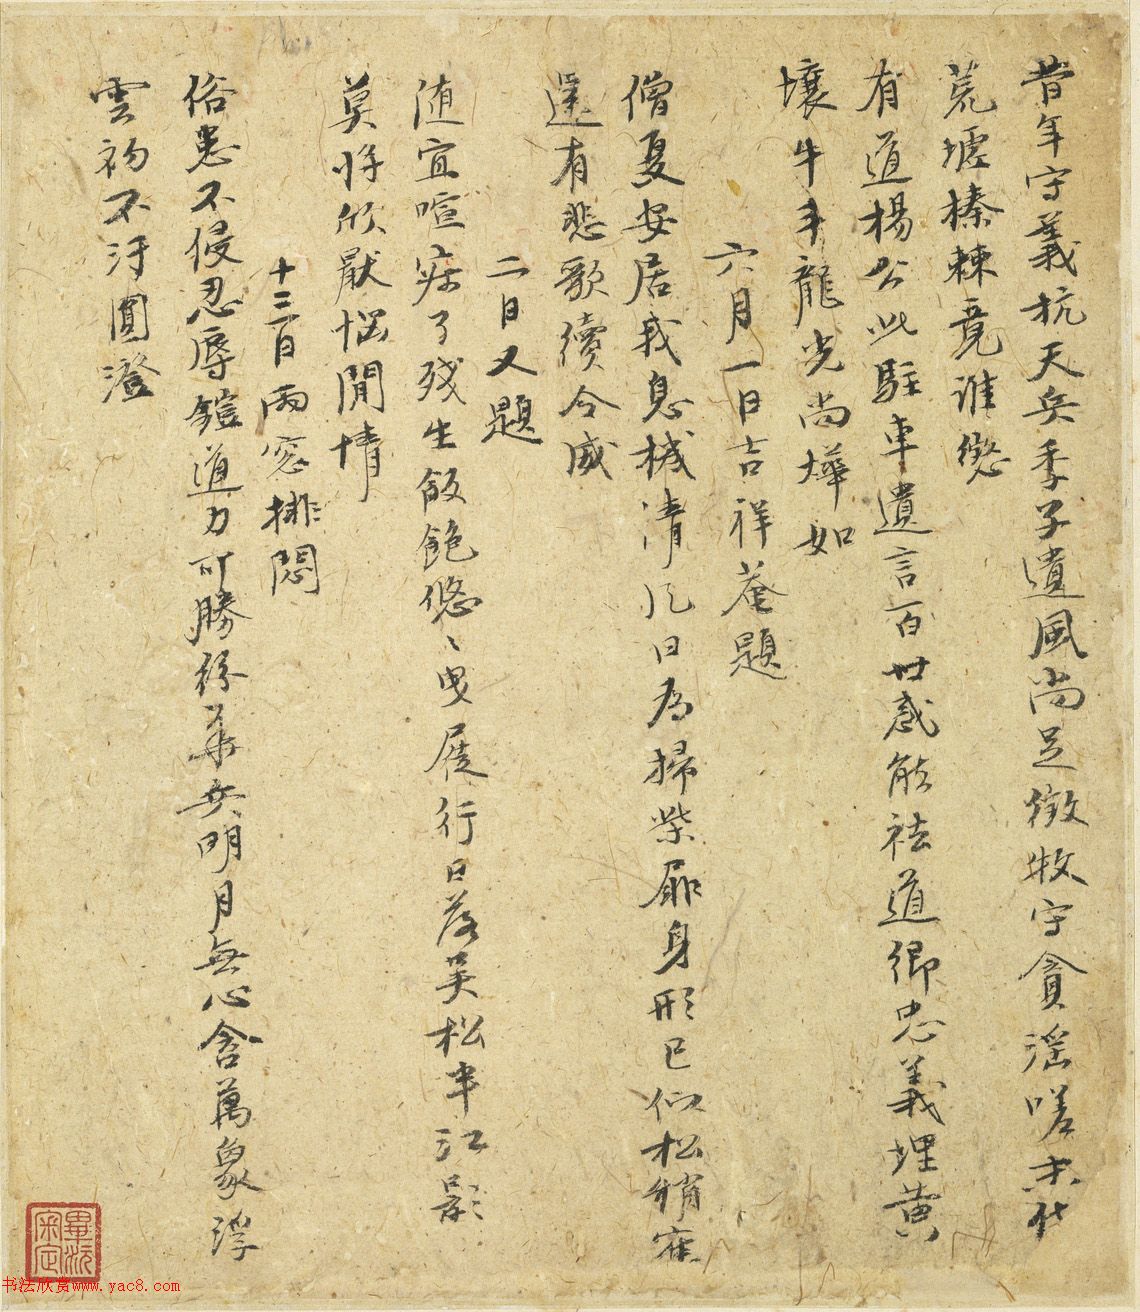 昔年守義抗天兵季子遺風尚足徵牧守貪滛嗟未代
荒墟榛棘竟誰懲
有道楊公此駐車遺言百世感能祛道卿忠義埋黄
壤牛斗龍光尚燁如
六月一日吉祥菴題
僧夏安居我息機清風日為掃柴扉身形已似松稍寉
還有悲歌續令威
二日又題
随宜喧寂了残生飯飽悠〻曳屐行日落吴松半江影
莫将欣厭惱閒情
十三日雨窓排悶
俗患不侵忍辱鎧道力可勝紛華兵明月無心含萬象浮
雲初不汙圓澄
畢沅
審定
书法欣赏www.yac8.com